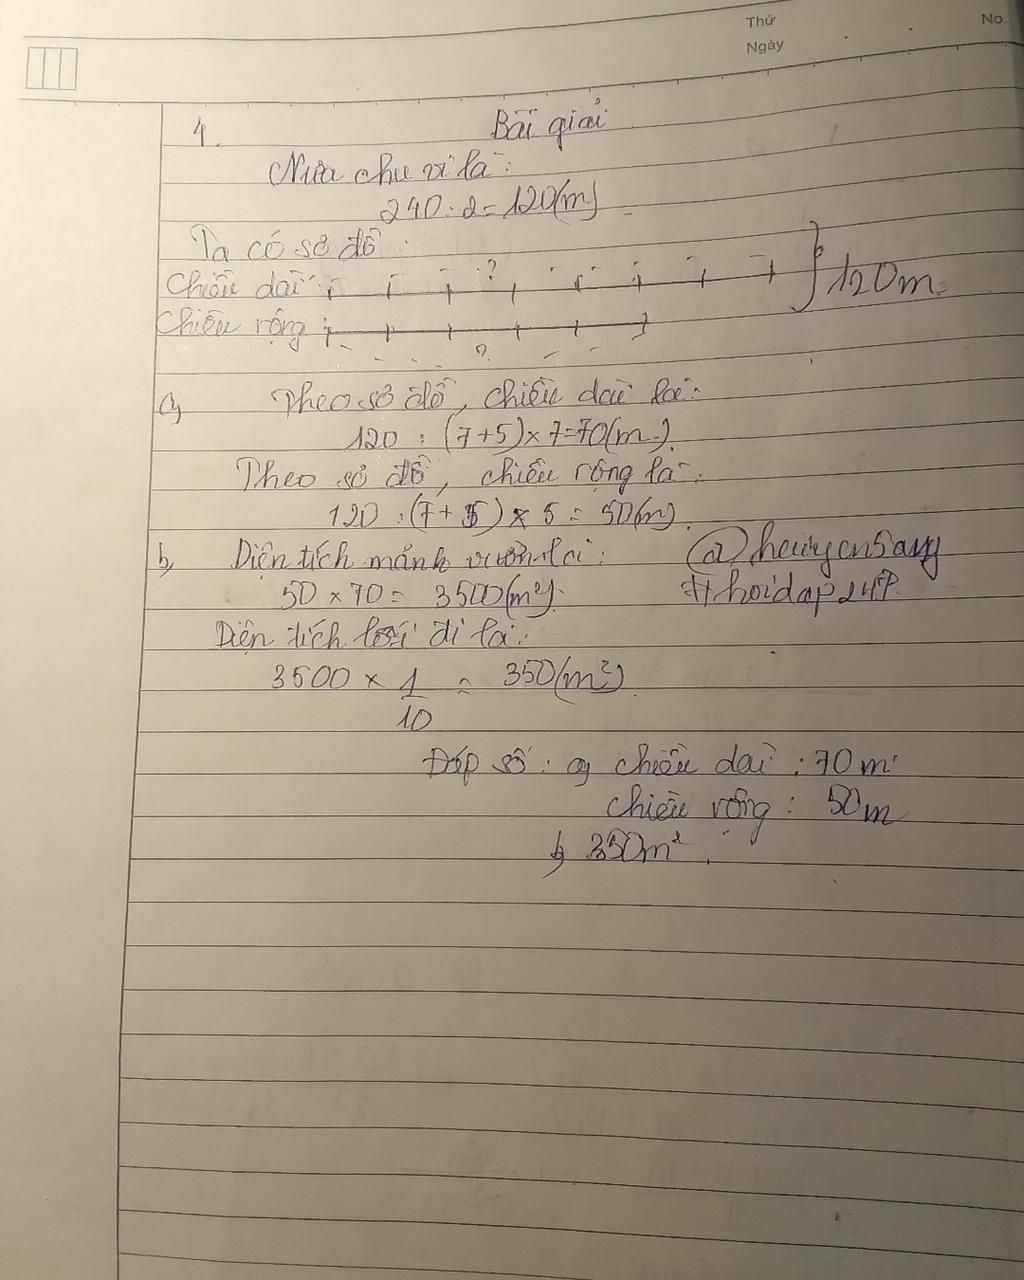 Thứ
Ngày
No.
4. Bài giải
Nửa chu vi là:
240 : 2 = 120(m)
Ta có sơ đồ:
Chiều dài: ? 120m
Chiều rộng: ?
a, Theo sơ đồ, chiều dài là:
120 : (7+5) × 7 = 70(m)
Theo sơ đồ, chiều rộng là:
120 : (7+5) × 5 = 50(m)
b, Diện tích mảnh vườn là: @
50 × 70 = 3500(m²) #hoidap247
Diện tích lối đi là:
3500 × 1/10 = 350(m²)
Đáp số: a, chiều dài: 70m
chiều rộng: 50m
b, 350m².